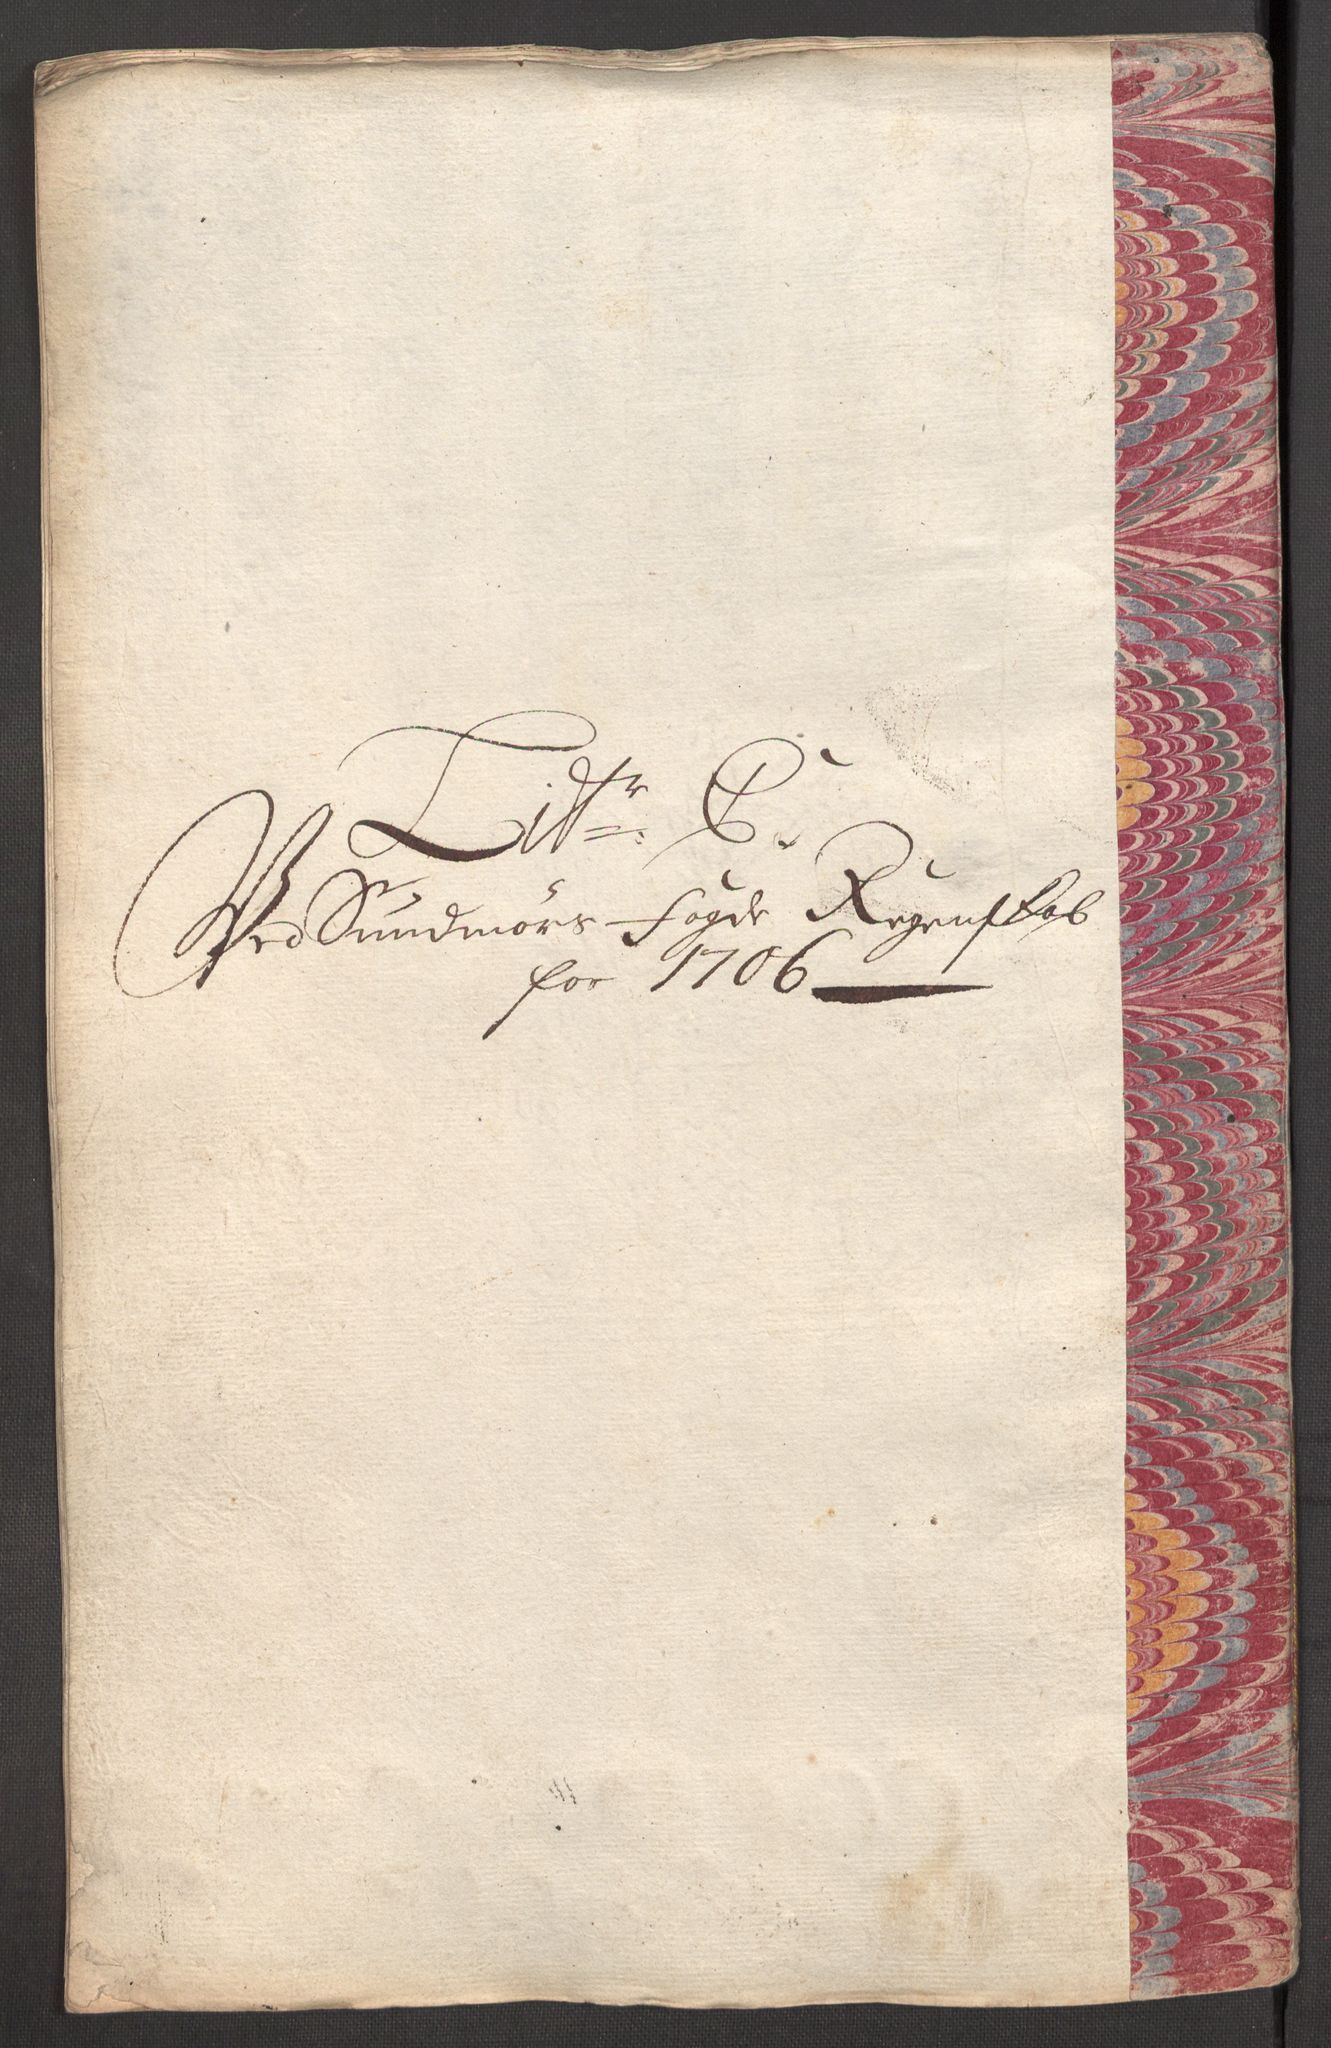 Littr: C.
Ved Sundmørs Fogde Regenskab
for 1706